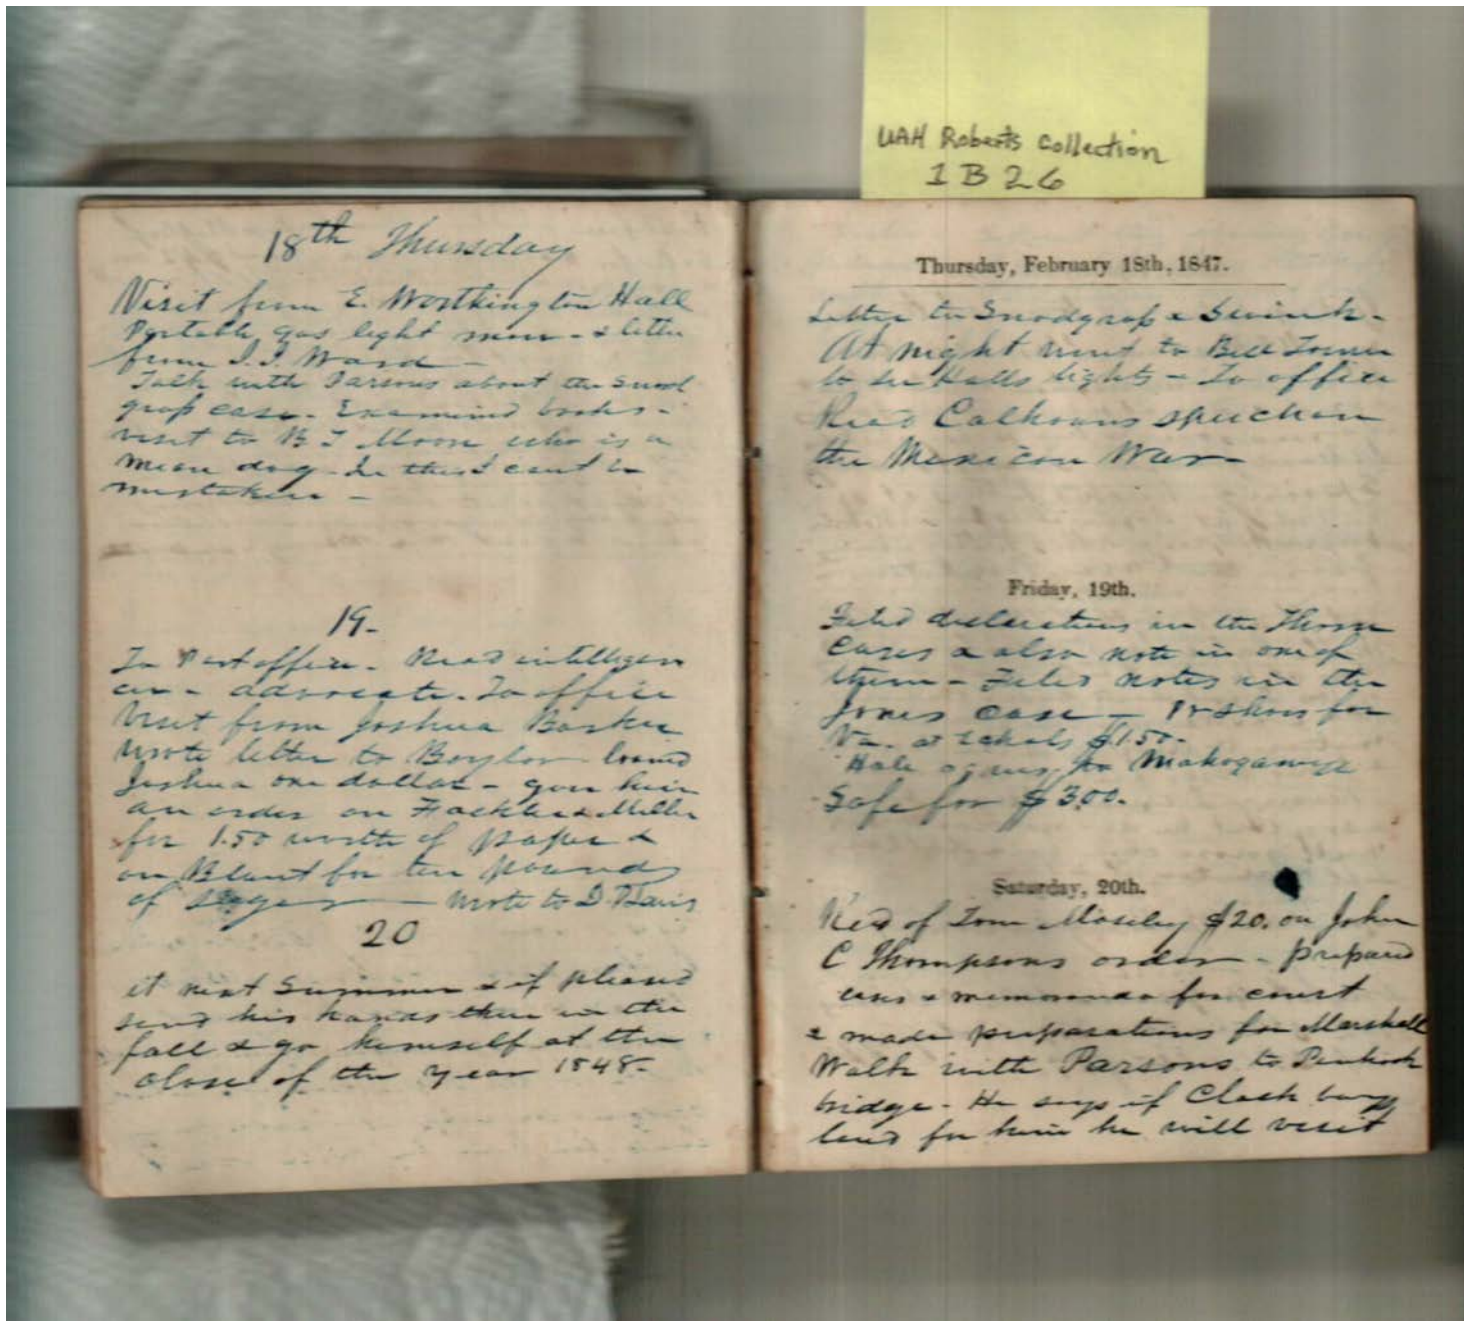 UAH Roberts Collection
1 B 26
18th Thursday
Visit from E. Worthington Hall
Portable gas light man - & letter
from J. J. Ward -
Talk with Parsons about the Snod
grass case - Examined books -
visit to B T Moon who is a
mean dog - In this I cant be
mistaken -
19-
To Post office - Read intelligen
cer - advocate. To office
Visit from Joshua
wrote letter to Baylor - loaned
Joshua one dollar - gave him
an order on Fackler & Miller
for 1.50 worth of paper &
on Blunt for ten pounds
of - wrote to D Davis
20
it next Summer & if pleased
send his hands there in the
fall & go himself at the
close of the year 1848-
Thursday, February 18th, 1847.
Letter to Snodgrass & Swink -
At night went to Bell Tavern
to see Halls lights - To office
Read Calhouns speech on
the Mexican War -
Friday, 19th.
Filed declarations in the
Cases & also note in one of
them - Filed notes in the
Jones case - Pr Shoes for
Va. at $1.50-
Hale agrees for Mahogany
Safe for $3.00.
Saturday, 20th.
Recd of Tom Moseley $20. on John
C Thompsons order - prepared
cases & memoranda for court
& made preparations for Marshall
Walk with Parsons to
bridge - He says if Clack buys
land for him he will visit